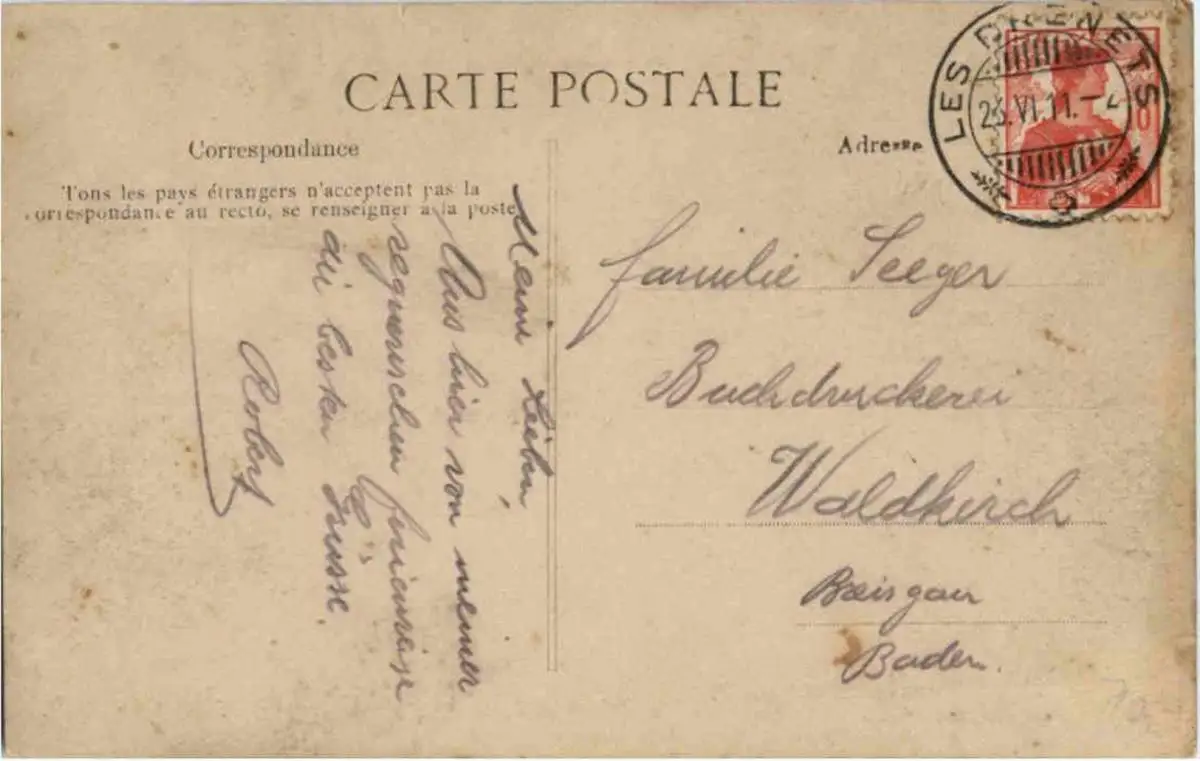 CARTE POSTALE
Correspondance
Tous les pays étrangers n'acceptent pas la
correspondance au recto, se renseigner à la poste
Adresse
LES BRENETS
23.VI.11.-
Meine Lieben,
Aus hier von meiner
regnerischen
die besten Grüsse.
Robert
Familie Seeger
Buchdruckerei
Waldkirch
Breisgau
Baden.